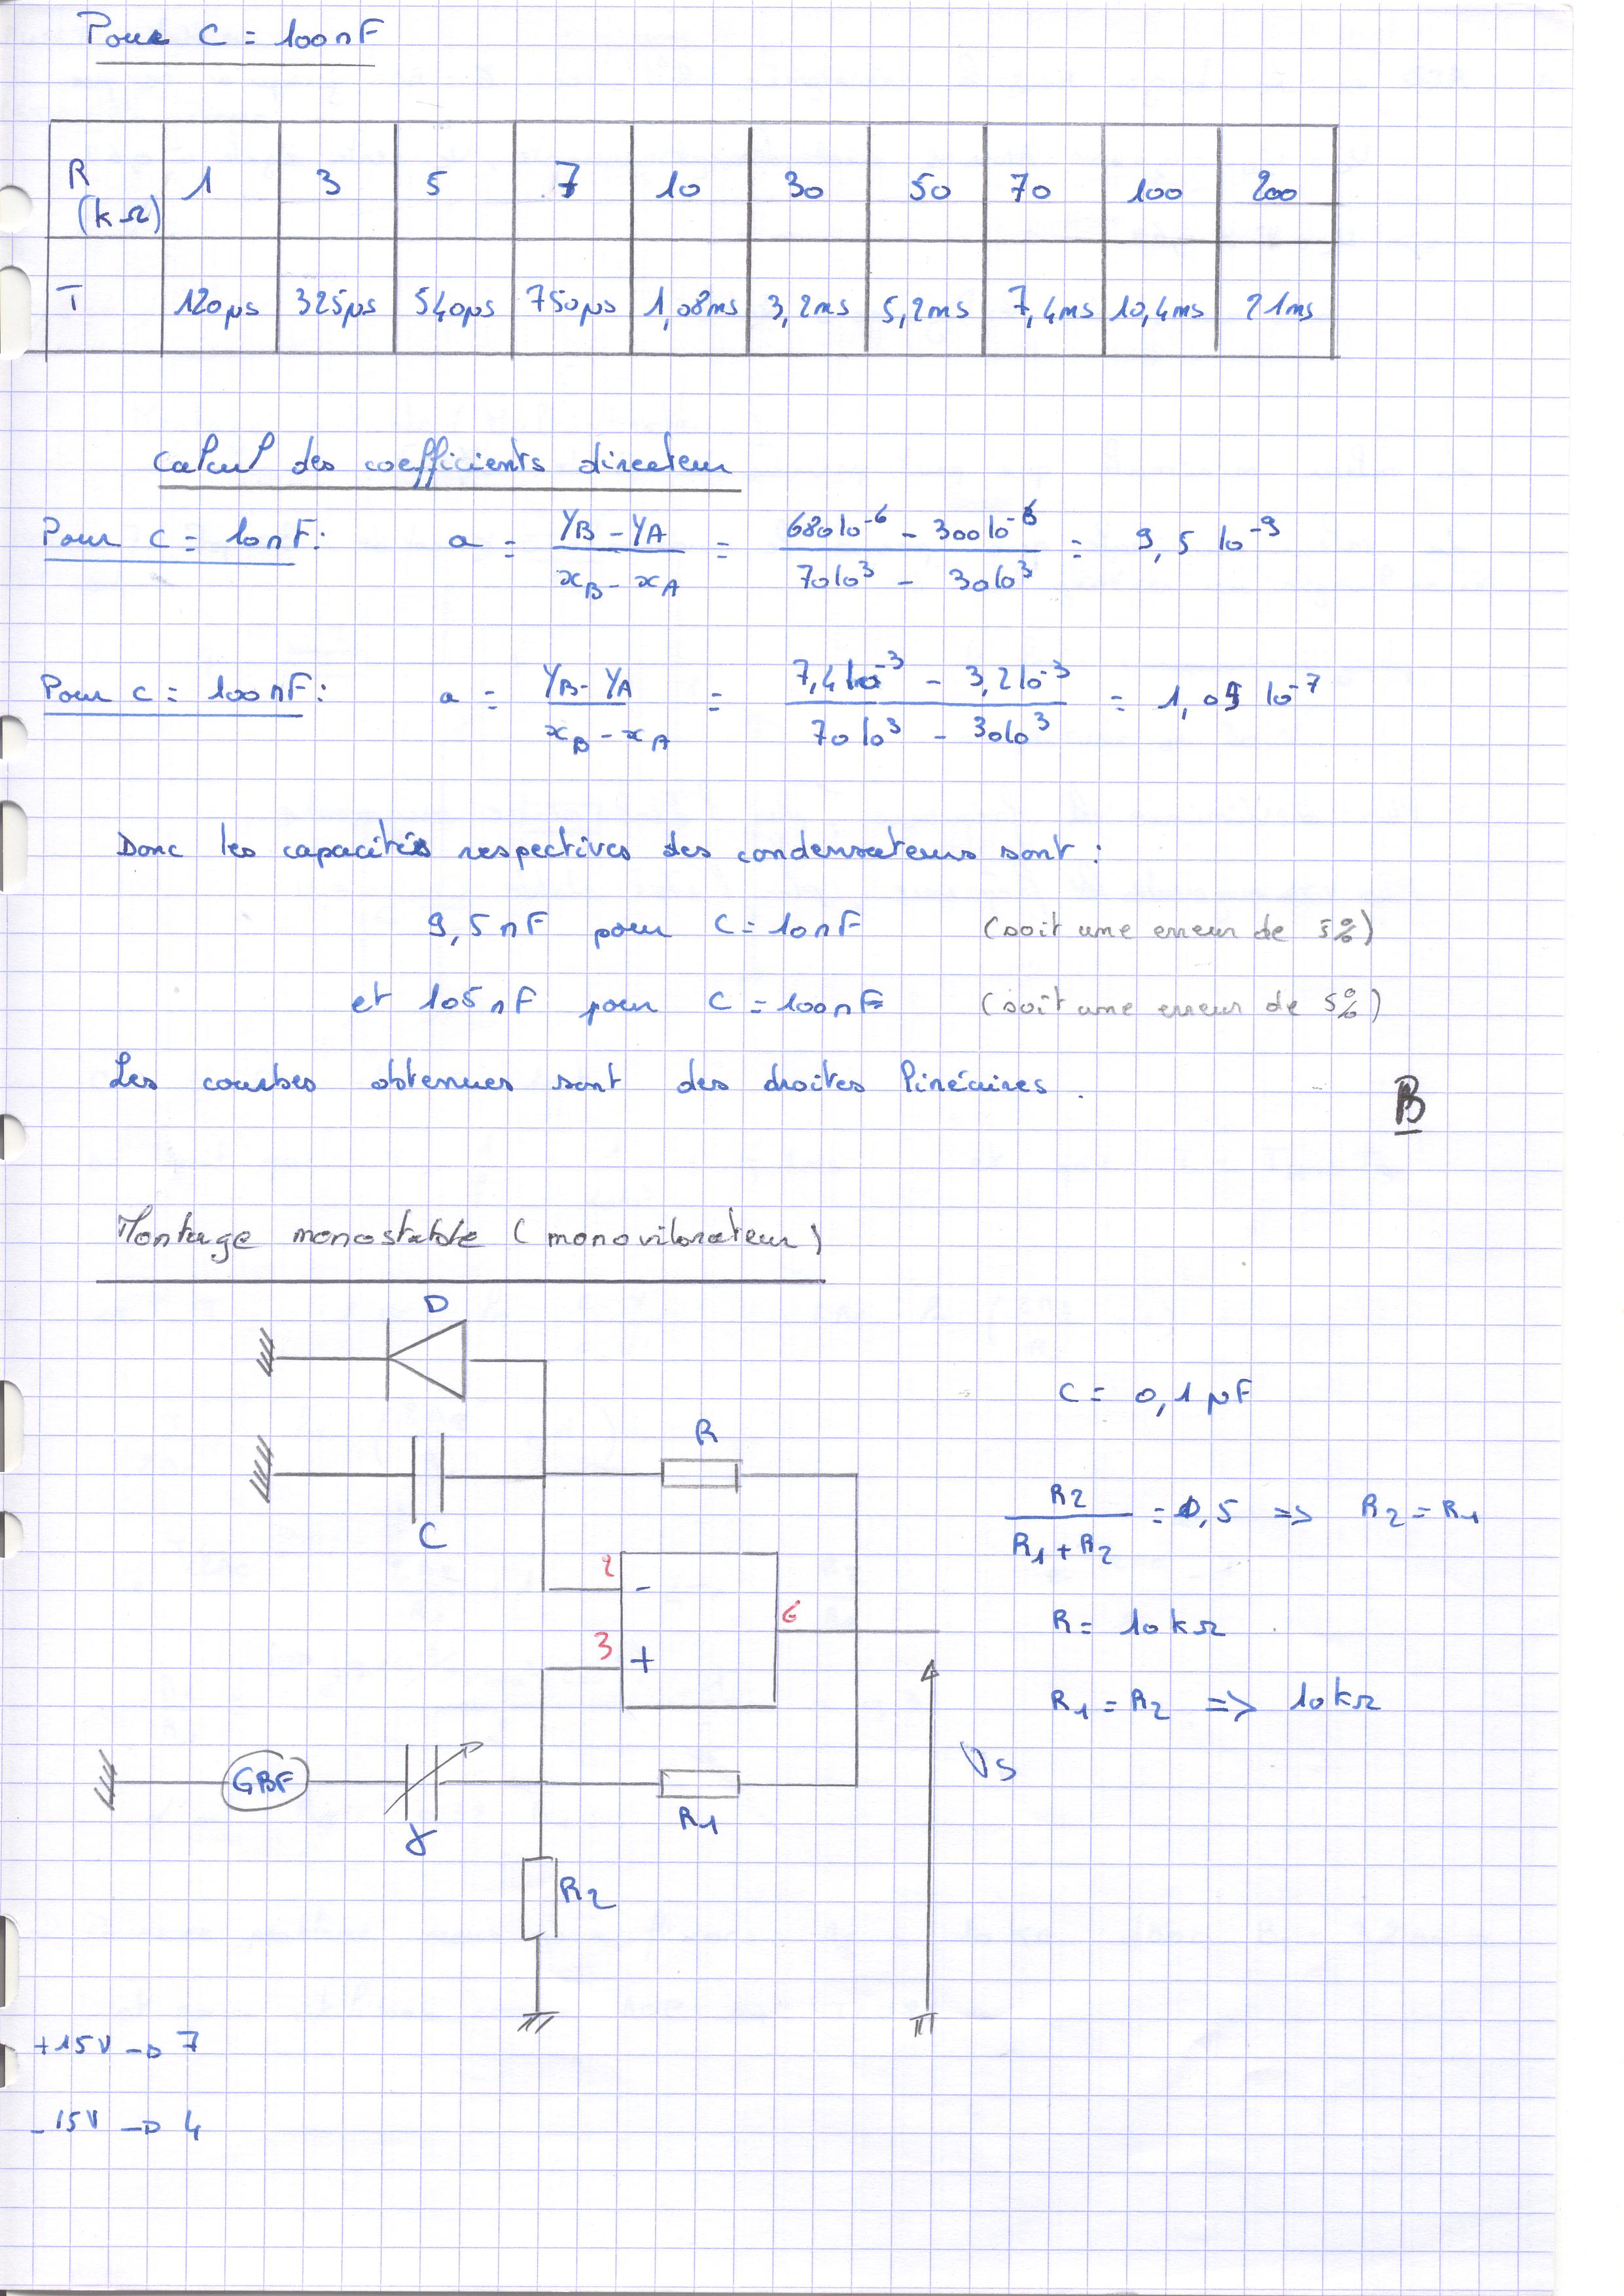 Pour C = 100nF
R (kΩ) 1 3 5 7 10 30 50 70 100 200
T 120µs 325µs 540µs 750µs 1,08ms 3,2ms 5,2ms 7,4ms 10,4ms 21ms
Calcul des coefficients directeur
Pour C = 10nF: a = (yB - yA) / (xB - xA) = (680 10⁻⁶ - 300 10⁻⁶) / (70 10³ - 30 10³) = 9,5 10⁻⁹
Pour C = 100nF: a = (yB - yA) / (xB - xA) = (7,4 10⁻³ - 3,2 10⁻³) / (70 10³ - 30 10³) = 1,05 10⁻⁷
Donc les capacités respectives des condensateurs sont :
9,5nF pour C = 10nF (soit une erreur de 5%)
et 105nF pour C = 100nF (soit une erreur de 5%)
Les courbes obtenues sont des droites linéaires.
B
Montage monostable (monovibrateur)
D
C = 0,1µF
R
C
R2 / (R1 + R2) = 0,5 => R2 = R1
2 -
6
R = 10kΩ
3 +
R1 = R2 => 10kΩ
Vs
GBF
γ
R1
R2
+15V → 7
-15V → 4